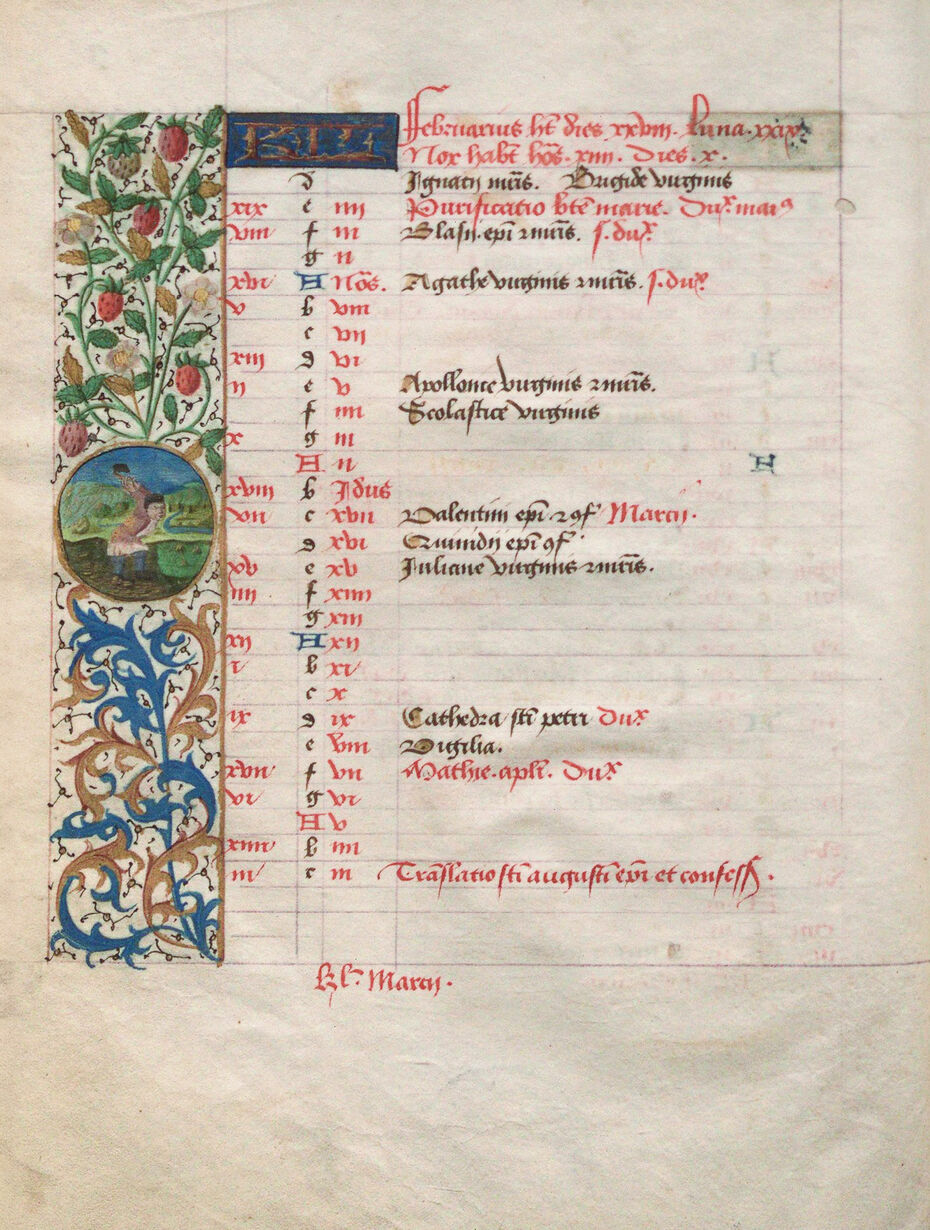 KL Februarius ht dies xxviii. Luna. xxix.
Nox habet hōs. xiiii. Dies. x.
d Ignatij mris. Brigide virginis
xix e iiii Purificatio bte marie. Dux. maiꝰ
viii f iii Blasij. epi ⁊ mris. s. dux
g ii
xvi A Nōs. Agathe virginis ⁊ mris. s. dux
v b viii
c vii
xiii d vi
ii e v Apollonie virginis ⁊ mris.
f iiii Scolastice virginis
x g iii
A ii
xviii b Idus
vii c xvi Valentini epi ⁊ ꝯf Marcij.
d xvi epi ꝯf
xv e xv Iuliane virginis ⁊ mris.
iiii f xiiii
g xiii
xii A xii
i b xi
c x
ix d ix Cathedra sti petri Dux
e viii Vigilia.
xvii f vii Mathie. apli. Dux
vi g vi
A v
xiiii b iiii
iii c iii Translatio sti augusti epi et confess.
kl. Marcij.